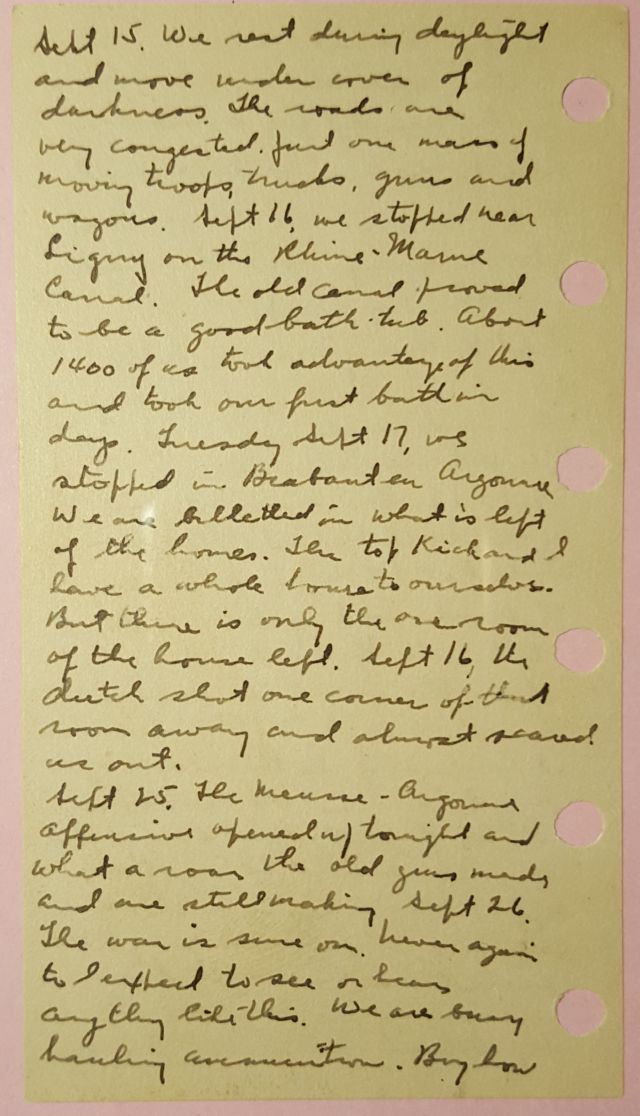 Sept 15. We rest during daylight
and move under cover of
darkness. The roads are
very congested. Just one mass of
moving troops, trucks, guns and
wagons. Sept 16, we stopped near
Ligny on the Rhine-Marne
Canal. The old canal proved
to be a good bath-tub. About
1400 of us took advantage of this
and took our first bath in
days. Tuesday Sept 17, we
stopped in Brabant en Argonne
We are billetted in what is left
of the homes. The top Kick and I
have a whole house to ourselves.
But there is only the one room
of the house left. Sept 16, the
dutch shot one corner of that
room away and almost scared
us out.
Sept 25. The Meusse-Argonne
offensive opened up tonight and
what a roar the old guns made
and are still making Sept 26.
The war is sure on. Never again
to I expect to see or hear
anything like this. We are busy
hauling ammunition. Boy how